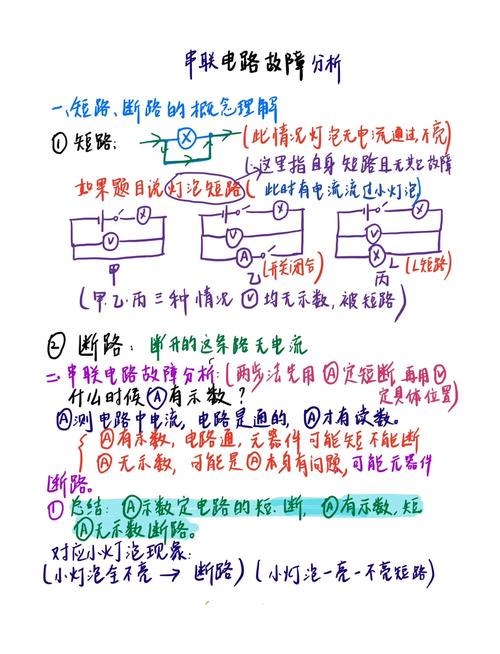 串联电路故障分析
一、短路、断路的概念理解
① 短路: (此情况灯泡无电流通过,不亮)
(∵这里指自身短路且无其它故障
如果题目说灯泡短路( 此时有电流流过小灯泡)
甲 乙 (开关闭合) 丙 L (L短路)
(甲.乙.丙三种情况 Ⓥ均无示数,被短路)
② 断路: 断开的这条路无电流
二、串联电路故障分析: (两步法先用Ⓐ定短断 再用Ⓥ
定具体位置)
什么时候Ⓐ有示数?
Ⓐ测电路中电流, 电路是通的, Ⓐ才有读数。
{ Ⓐ有示数, 电路通, 元器件可能短不能断
Ⓐ无示数, 可能是Ⓐ本身有问题, 可能元器件
断路。
① 总结: Ⓐ示数定电路的短.断, Ⓐ有示数, 短
Ⓐ无示数断路。
对应小灯泡现象:
(小灯泡全不亮 → 断路) (小灯泡一亮一不亮短路)